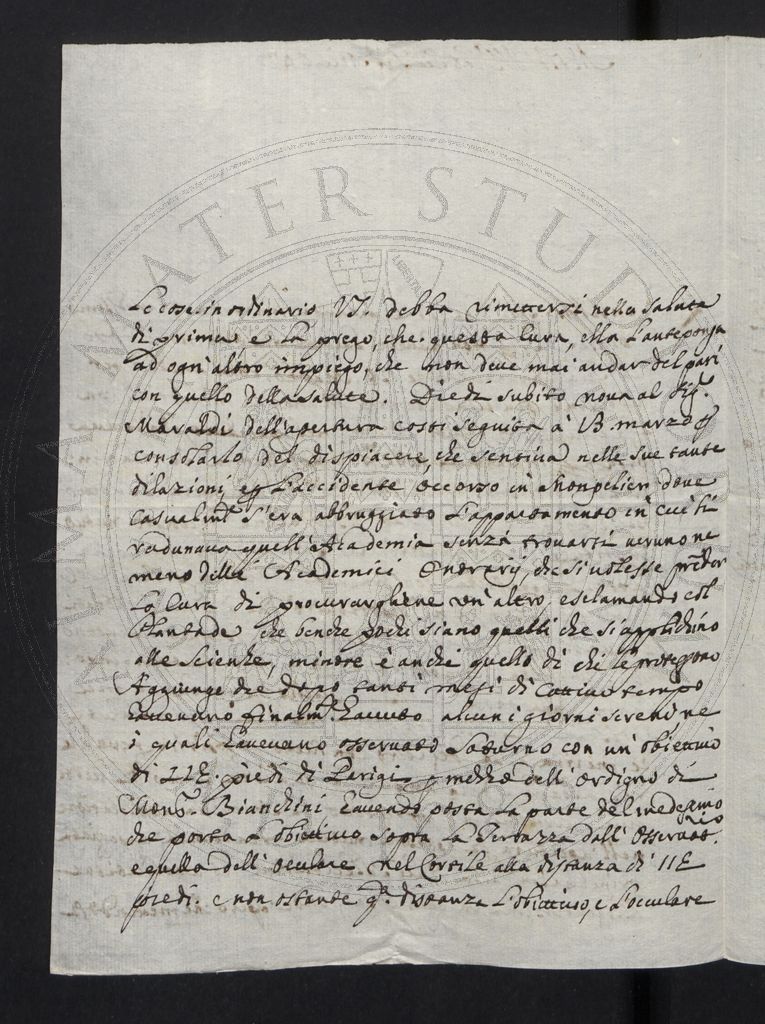 ALMA MATER STUD
Le cose in ordinario VS. debba rimettersi nella salute
di prima e La prego, che questa Cura, ella L'anteponga
ad ogn'altro impiego, che non deve mai andar del pari
con quello della salute. Diedi subito nova al Sig.r
Maraldi dell'apertura costì seguita à 13 marzo p
consolarlo del dispiacere, che sentiva nelle sue tante
dilazioni, e p L'accidente occorso in Monpelier dove
casualm.te s'era abbruggiato L'appartamento in cui si
radunava quell'Academia senza trovarsi veruno ne
meno delli Academici Onorarij, che si volesse prender
La Cura di procurarghene un'altro, esclamando col
Plantade che benche pochi siano quelli che si applichino
alle scienze, minore è anche quello di chi le protegono
Aggiunge che dopo tanti mesi di Cattivo tempo
havevano finalm.te havuto alcuni giorni sereni ne
i quali havevano osservato Saturno con un'obiettivo
di 112. piedi di Parigi p mezzo dell'ordigno di
Mons.r Bianchini havendo posta La parte del medesimo
che porta L'obiettivo sopra La Terrazza dell'Osservat.o
e quella dell'oculare nel Cortile alla distanza di 112
piedi. e non ostante q.ta distanza L'obiettivo, e L'occulare